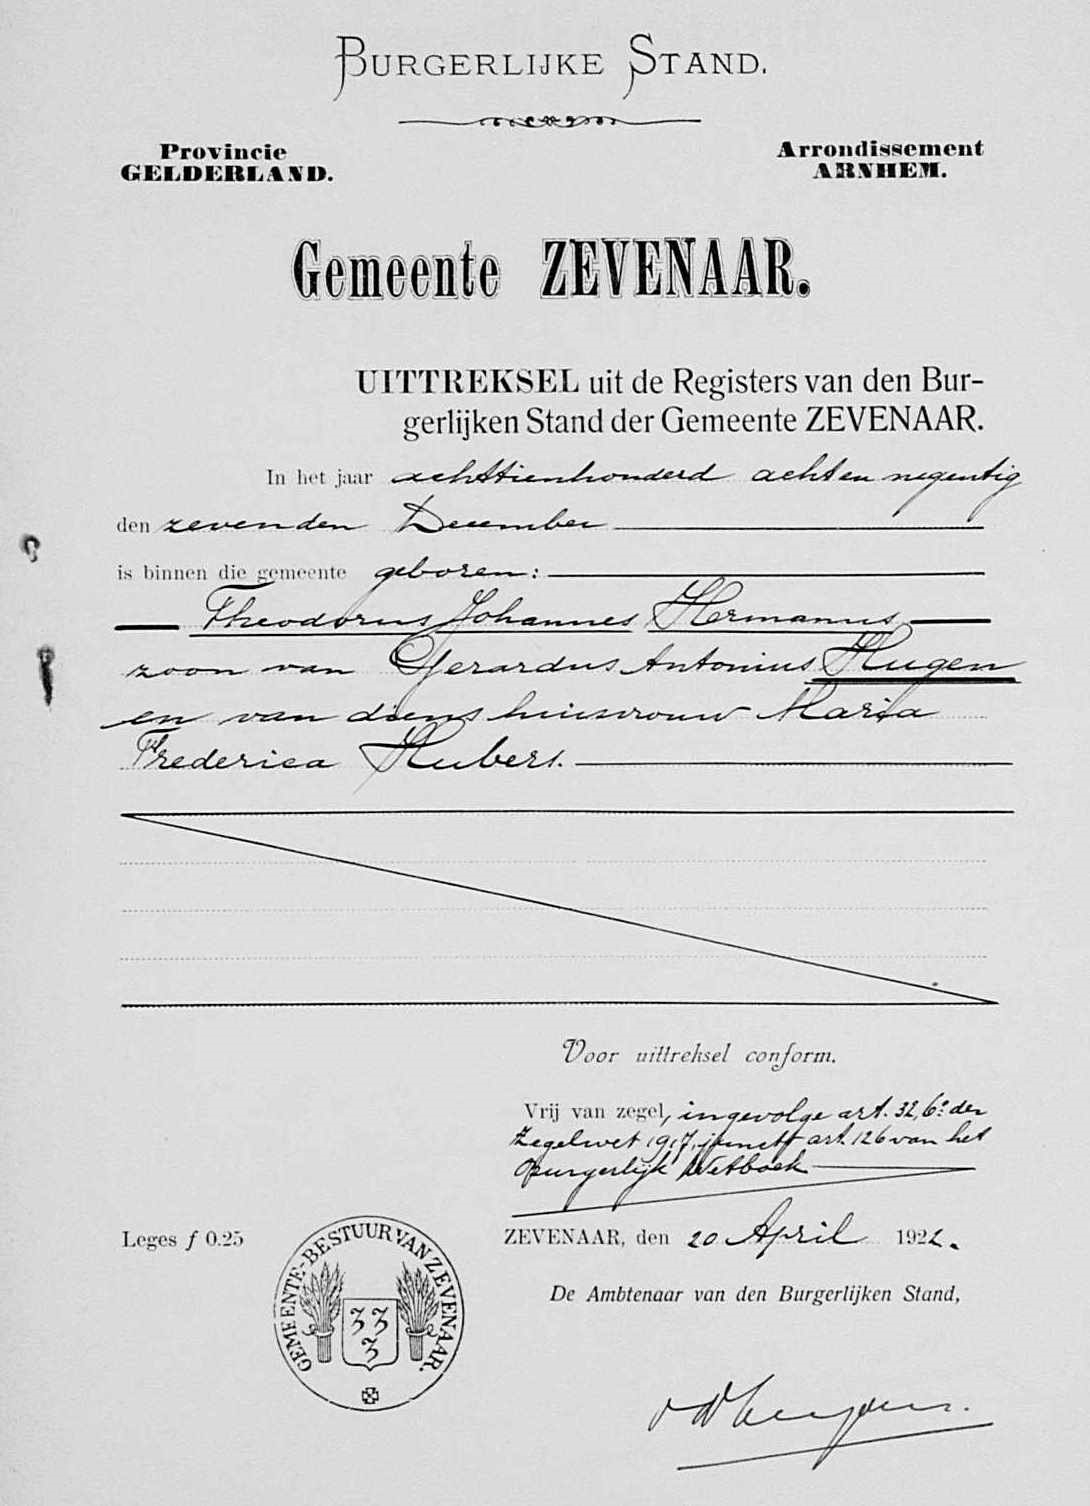 BURGERLIJKE STAND.
Provincie
GELDERLAND.
Arrondissement
ARNHEM.
Gemeente ZEVENAAR.
UITTREKSEL uit de Registers van den Bur-
gerlijken Stand der Gemeente ZEVENAAR.
In het jaar achttienhonderd acht en negentig
den zevenden December
is binnen die gemeente geboren:
Theodorus Johannes Hermanus
zoon van Gerardus Antonius Hugen
en van diens huisvrouw Maria
Frederica Hubers.
Voor uittreksel conform.
Vrij van zegel, ingevolge art. 32, 6º der
Zegelwet 1917, juncto art. 126 van het
Burgerlijk Wetboek
Leges f 0.25
ZEVENAAR, den 20 April 1922.
De Ambtenaar van den Burgerlijken Stand,
GEMEENTE-BESTUUR VAN ZEVENAAR.
3 3
3